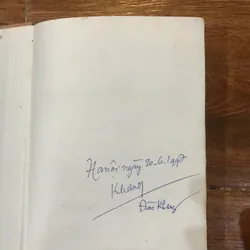 Hanôi ngày 20-6-1997
Khang
Đào Khang